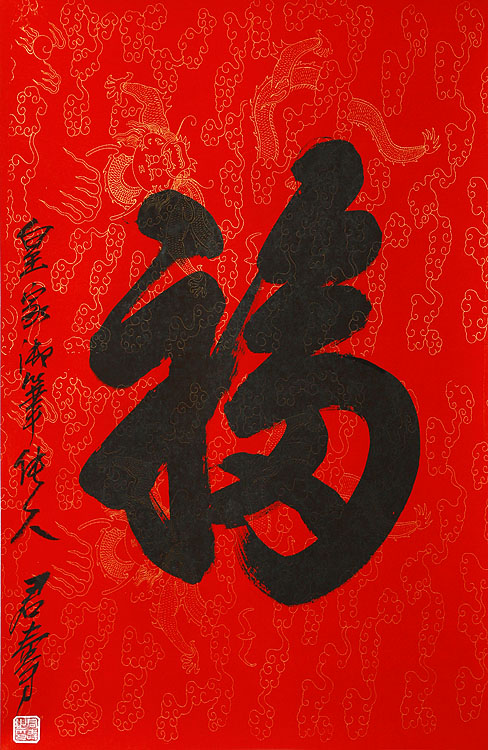 福
皇家御筆传人 君壽